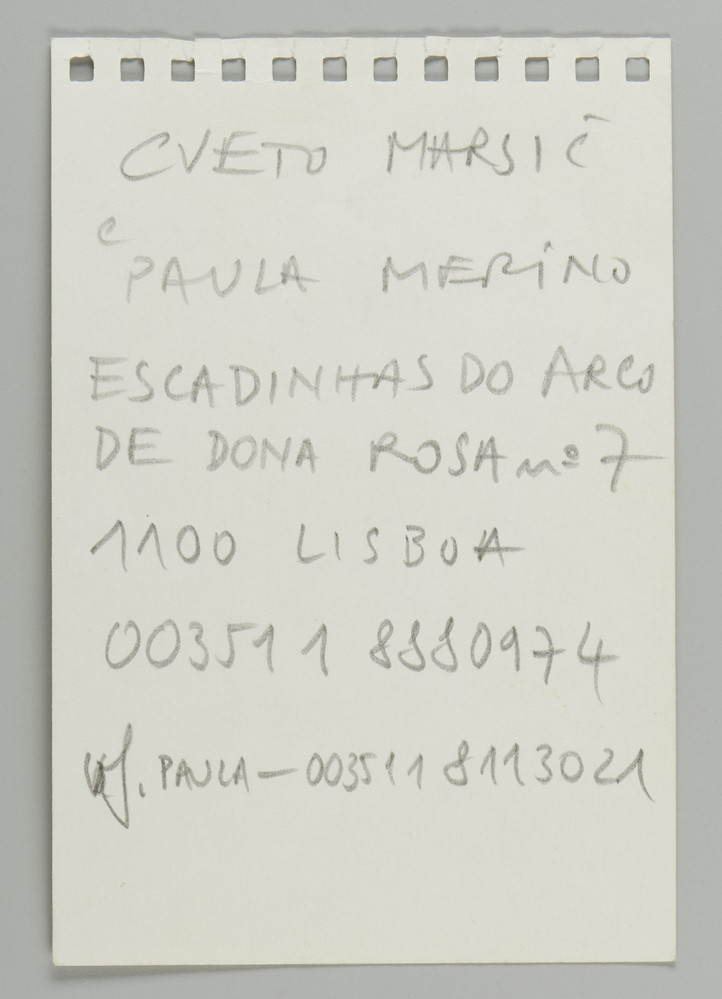 CVETO MARSIČ
e
PAULA MERINO
ESCADINHAS DO ARCO
DE DONA ROSA nº 7
1100 LISBOA
003511 8880974
PAULA — 003511 8113021